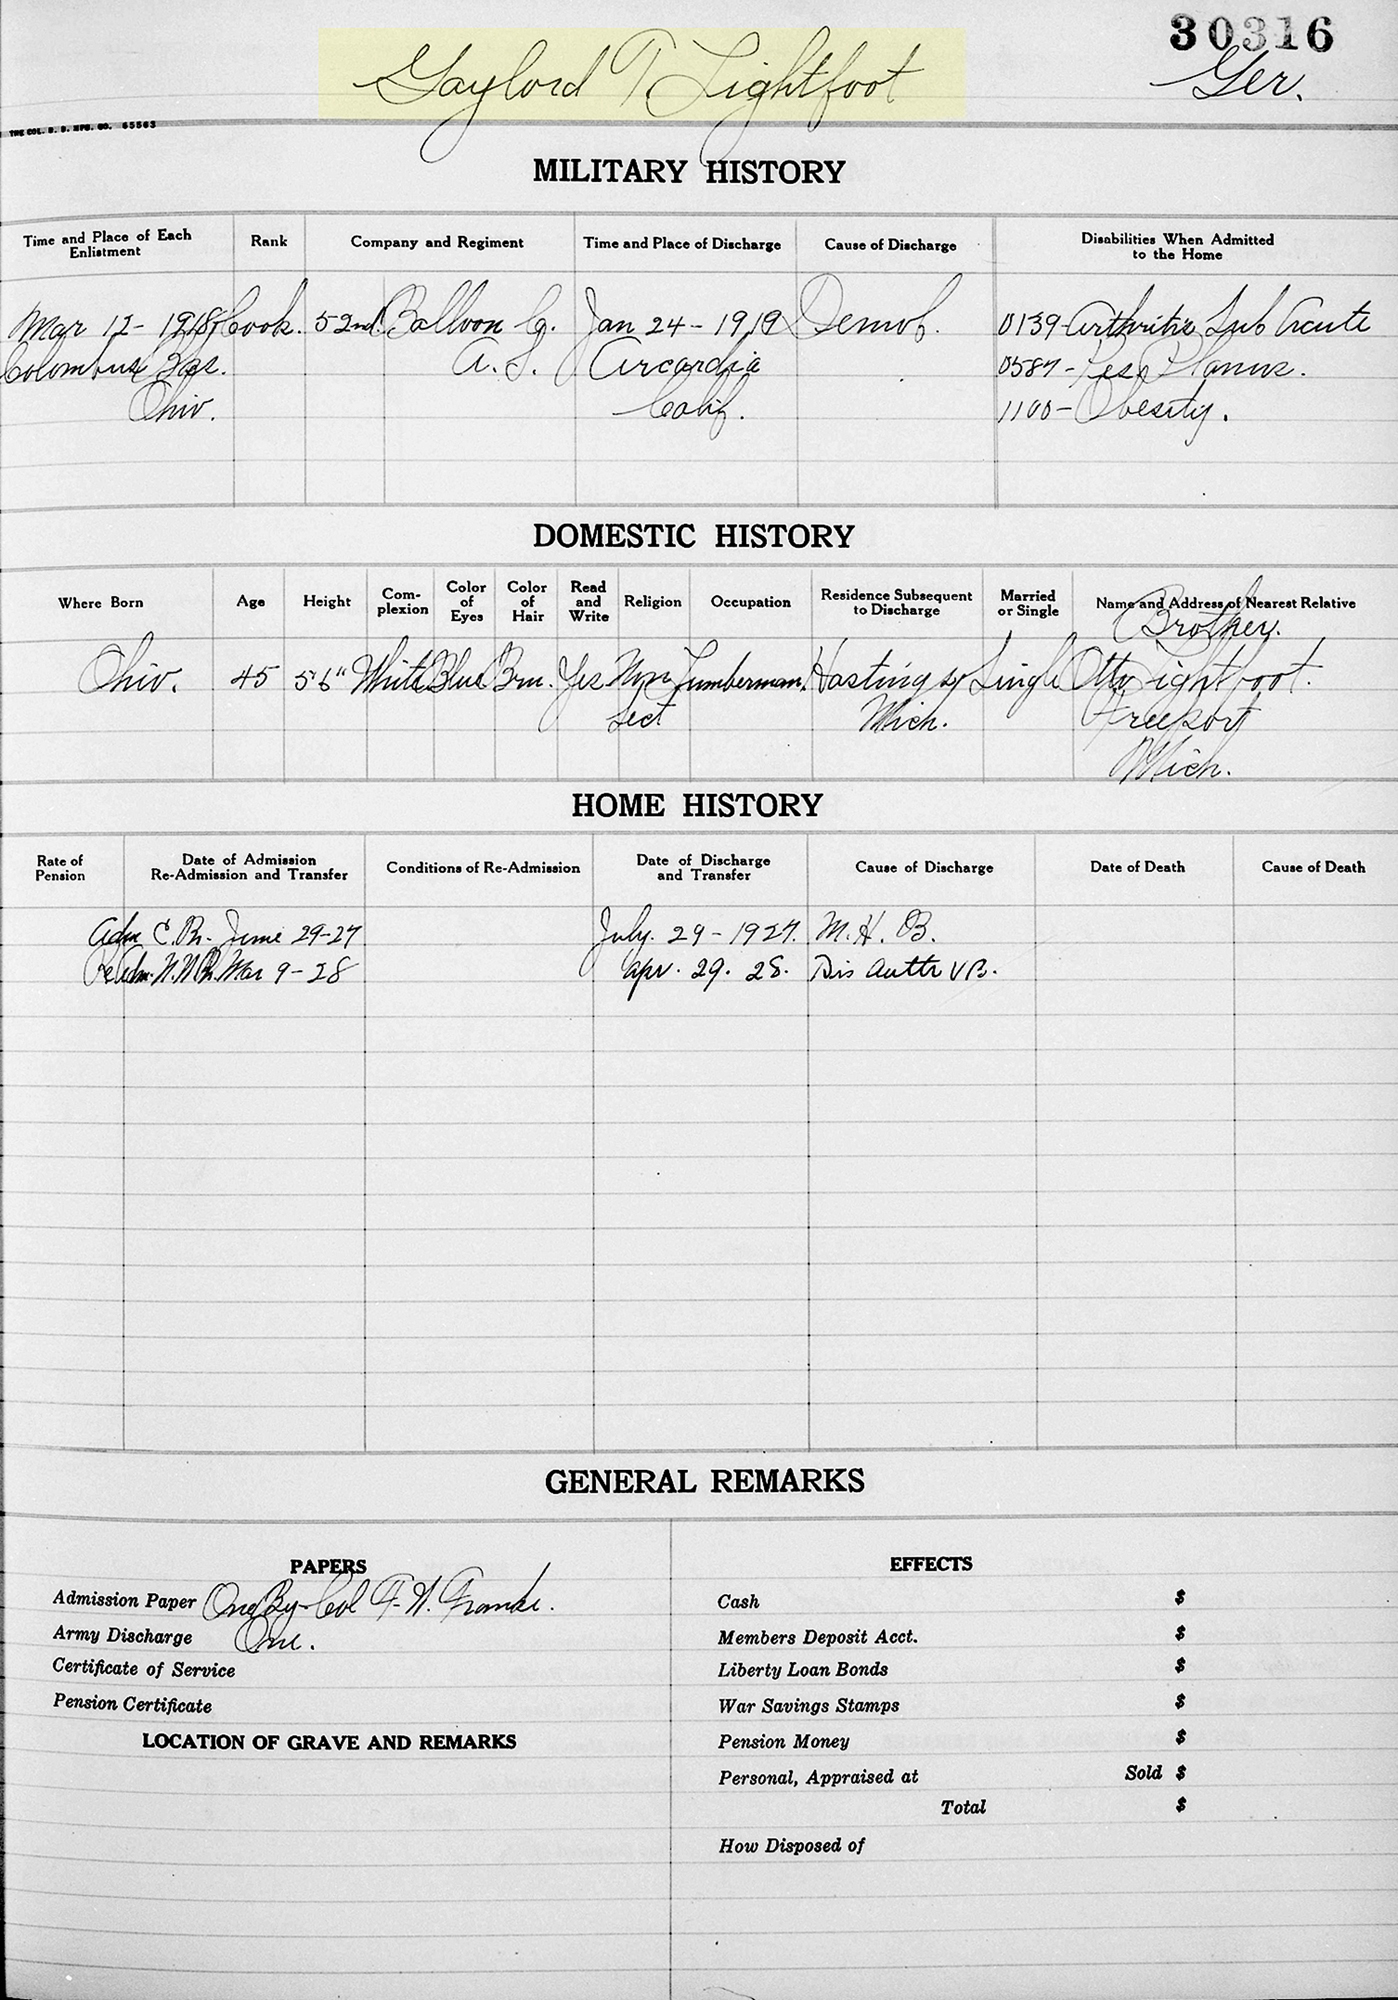 30316
Gaylord T Lightfoot
Ger.
MILITARY HISTORY
Time and Place of Each Enlistment
Rank
Company and Regiment
Time and Place of Discharge
Cause of Discharge
Disabilities When Admitted to the Home
Mar 12 - 1918 Cook. 52nd Balloon Co. Jan 24 - 1919 Demob. 0139 - Arthritis Sub Acute
Columbus Bks. A. S. Arcardia 0587 - Pes Planus.
Ohio. Calif. 1100 - Obesity.
DOMESTIC HISTORY
Where Born
Age
Height
Complexion
Color of Eyes
Color of Hair
Read and Write
Religion
Occupation
Residence Subsequent to Discharge
Married or Single
Name and Address of Nearest Relative
Brother.
Ohio. 45 5'6" White Blue Brn. Yes Non Lumberman. Hastings Single Otto Lightfoot.
Sect Mich. Freeport
Mich.
HOME HISTORY
Rate of Pension
Date of Admission Re-Admission and Transfer
Conditions of Re-Admission
Date of Discharge and Transfer
Cause of Discharge
Date of Death
Cause of Death
Adm C.B. - June 29-27 July. 29 - 1927. M. H. B.
ReAdm. N.W.B. Mar 9 - 28 Apr. 29. 28. Dis Auth V B.
GENERAL REMARKS
PAPERS
Admission Paper One By Col F. W.
Army Discharge One.
Certificate of Service
Pension Certificate
LOCATION OF GRAVE AND REMARKS
EFFECTS
Cash $
Members Deposit Acct. $
Liberty Loan Bonds $
War Savings Stamps $
Pension Money $
Personal, Appraised at Sold $
Total $
How Disposed of